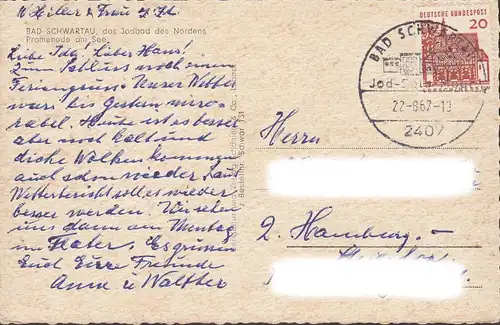 BAD-SCHWARTAU, das Jodbad des Nordens
Promenade am See
Liebe Ida! Lieber Hans!
Zum Schluss noch einen
Feriengruss. Unser Wetter
war bis gestern mise-
rabel. Heute ist es besser
aber noch kalt und
dicke Wolken kommen
auch schon wieder. Laut
Wetterbericht soll es wieder
besser werden. Wir sehen
uns dann am Montag
im Theater. Es grüssen
Euch Eure Freunde
Anna u Walther
DEUTSCHE BUNDESPOST
20
BAD SCHWARTAU
Jod-
22.-8.67-
2407
Herrn
2. Hamburg-